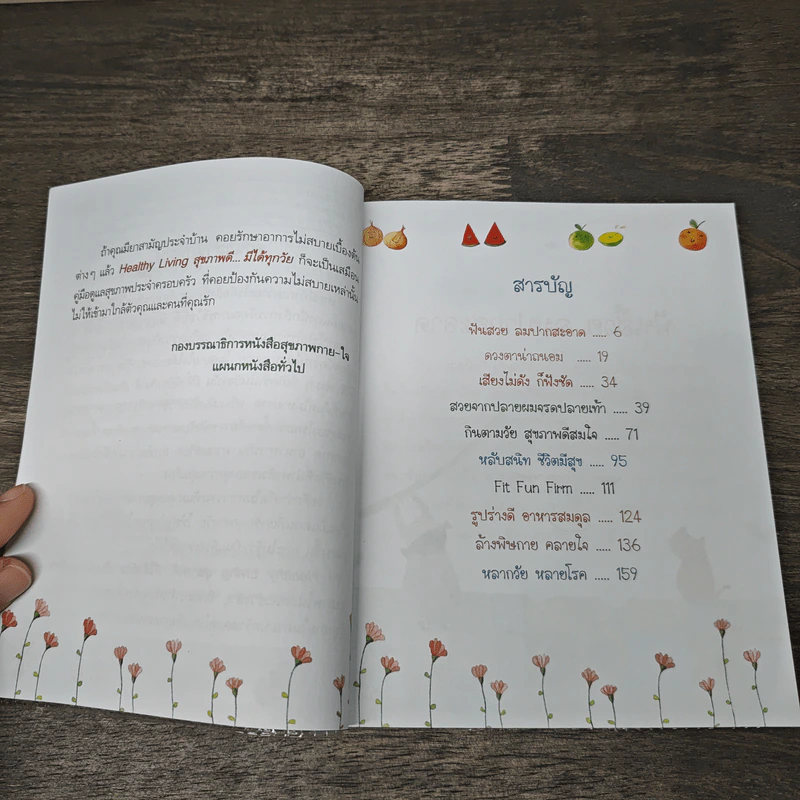 ถ้าคุณมียาสามัญประจำบ้าน คอยรักษาอาการไม่สบายเบื้องต้น
ต่างๆ แล้ว Healthy Living สุขภาพดี... มีได้ทุกวัย ก็จะเป็นเสมือน
คู่มือดูแลสุขภาพประจำครอบครัว ที่คอยป้องกันความไม่สบายเหล่านั้น
ไม่ให้เข้ามาใกล้ตัวคุณและคนที่คุณรัก
กองบรรณาธิการหนังสือสุขภาพกาย-ใจ
แผนกหนังสือทั่วไป
สารบัญ
ฟันสวย ลมปากสะอาด ..... 6
ดวงตาน่าถนอม ..... 19
เสียงไม่ดัง ก็ฟังชัด ..... 34
สวยจากปลายผมจรดปลายเท้า ..... 39
กินตามวัย สุขภาพดีสมใจ ..... 71
หลับสนิท ชีวิตมีสุข ..... 95
Fit Fun Firm ..... 111
รูปร่างดี อาหารสมดุล ..... 124
ล้างพิษกาย คลายใจ ..... 136
หลากวัย หลายโรค ..... 159